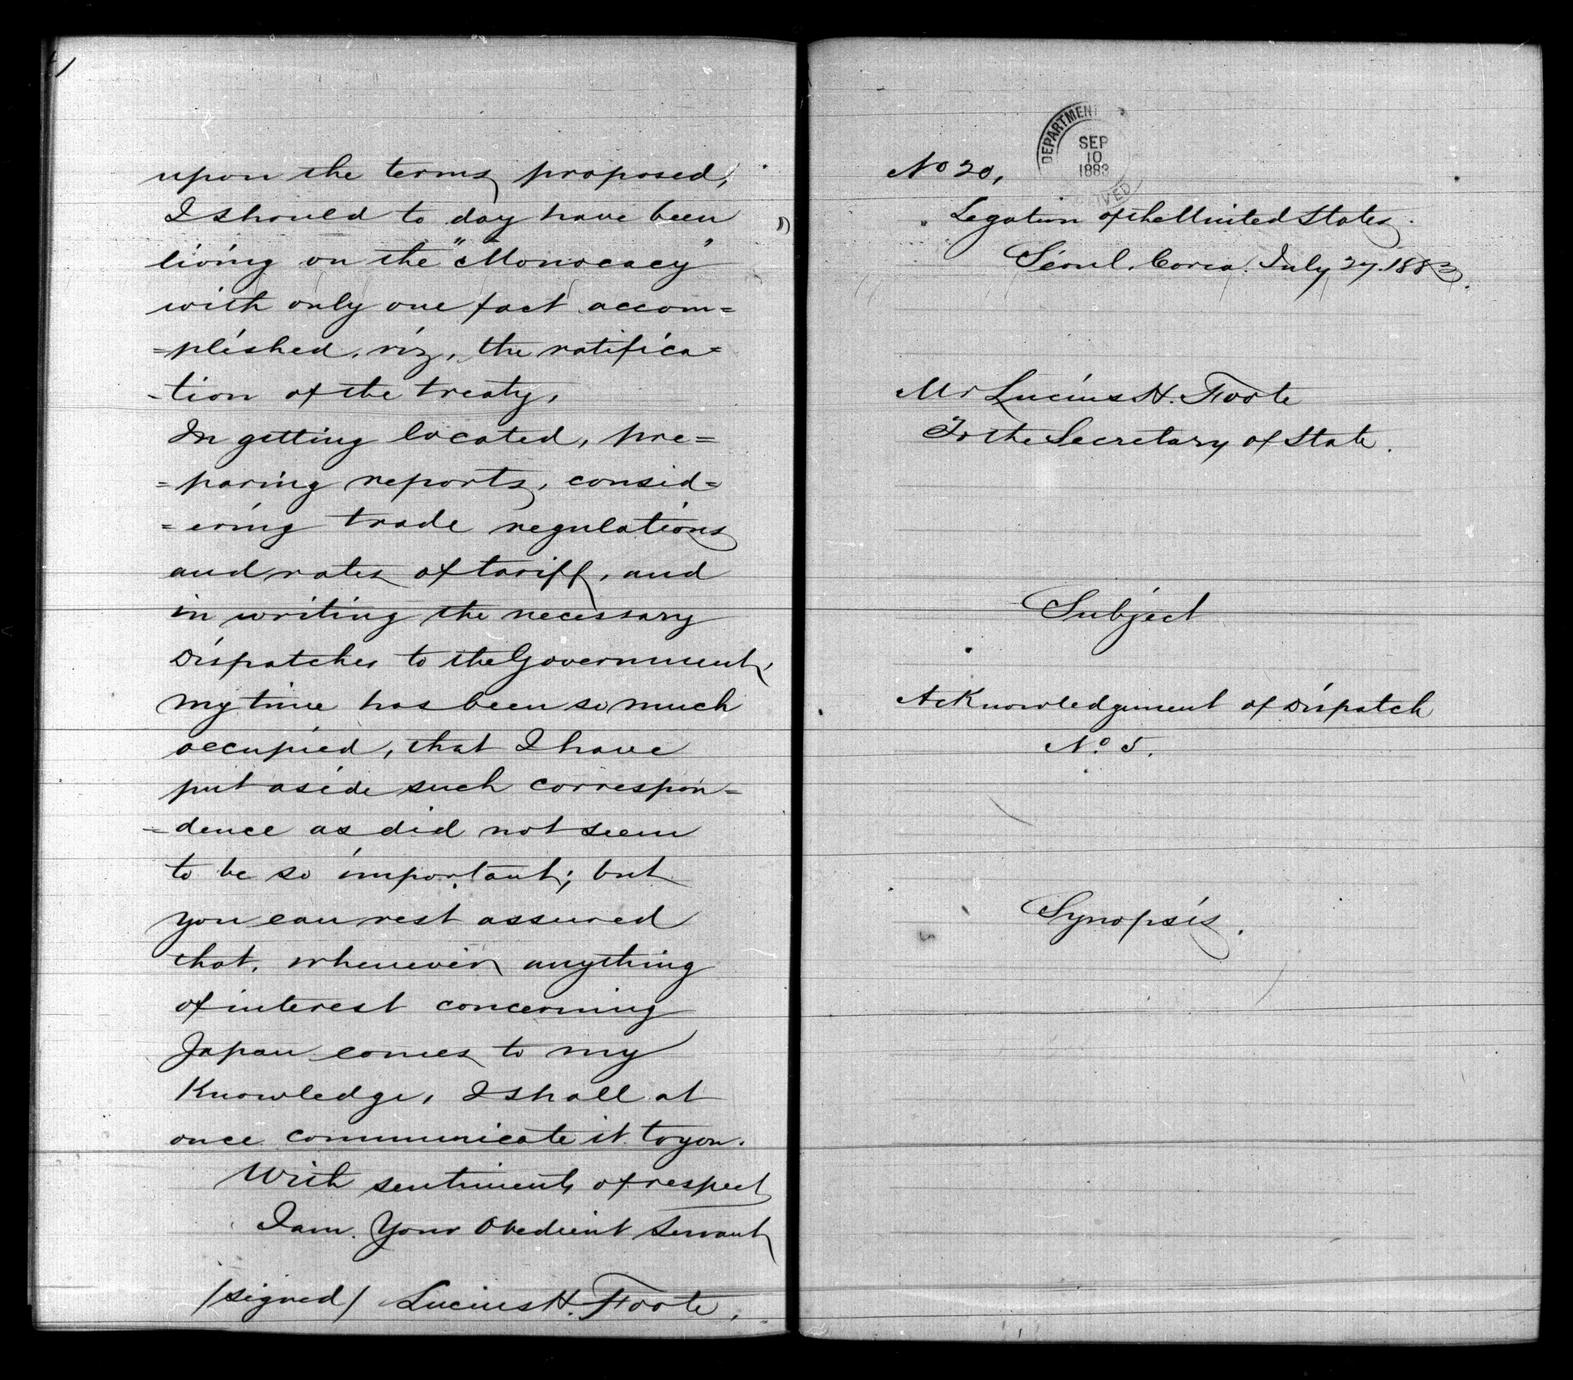 upon the terms proposed,
I should to day have been
living on the "Monocacy"
with only one fact accom=
=plished, viz, the ratifica=
-tion of the treaty.
In getting located, pre=
=paring reports, consid=
=ering trade regulations
and rates of tariff, and
in writing the necessary
Dispatches to the Government,
my time has been so much
occupied, that I have
put aside such correspon=
=dence as did not seem
to be so important; but
you can rest assured
that, whenever anything
of interest concerning
Japan comes to my
Knowledge, I shall at
once communicate it to you.
With sentiments of respect
I am. Your Obedient Servant
/signed/ Lucius H. Foote,
DEPARTMENT
SEP
10
1883
No 20,
Legation of the United States.
Séoul. Corea. July 27. 1883.
Mr Lucius H. Foote
To the Secretary of State.
Subject
Acknowledgement of Dispatch
No. 5.
Synopsis.